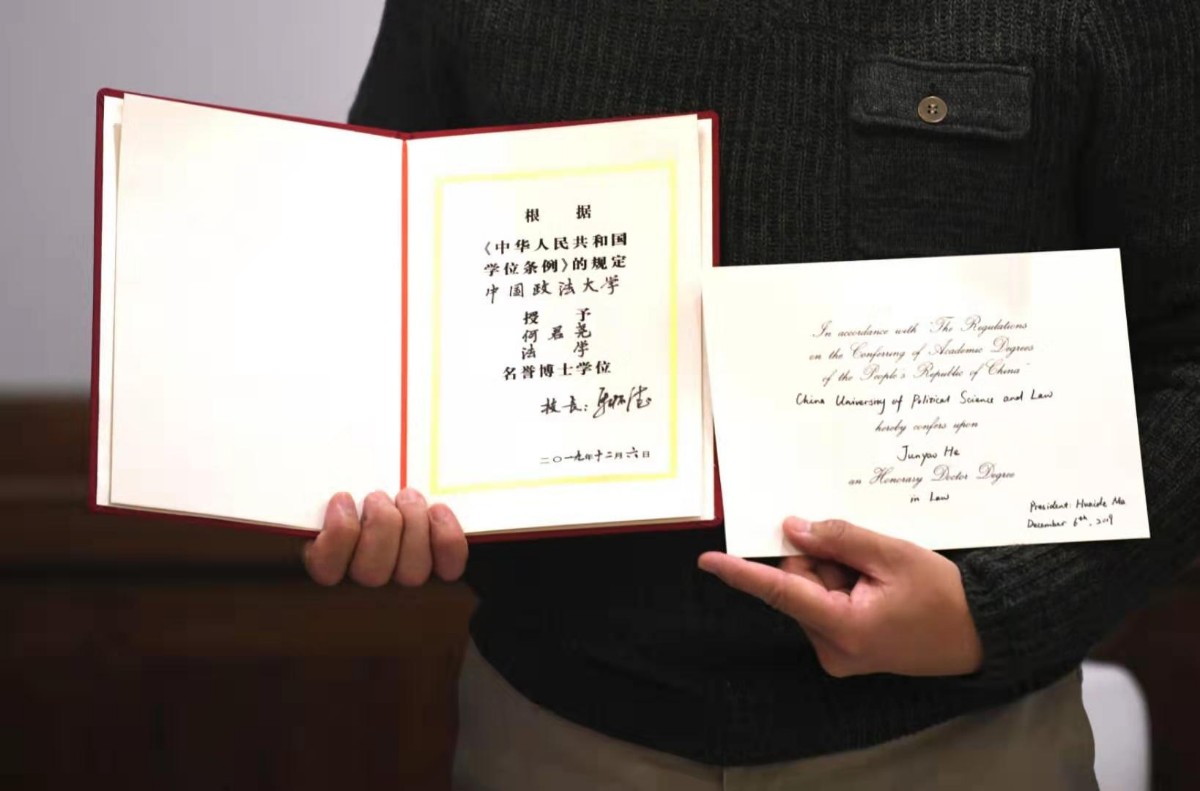 根 据
《中华人民共和国
学位条例》的规定
中国政法大学
授 予
何君尧
法 学
名誉博士学位
校长:
二〇一九年十二月六日
In accordance with "The Regulations
on the Conferring of Academic Degrees
of the People's Republic of China"
China University of Political Science and Law
hereby confers upon
Junyao He
an Honorary Doctor Degree
in Law
President: Huaide Ma
December 6th, 2019